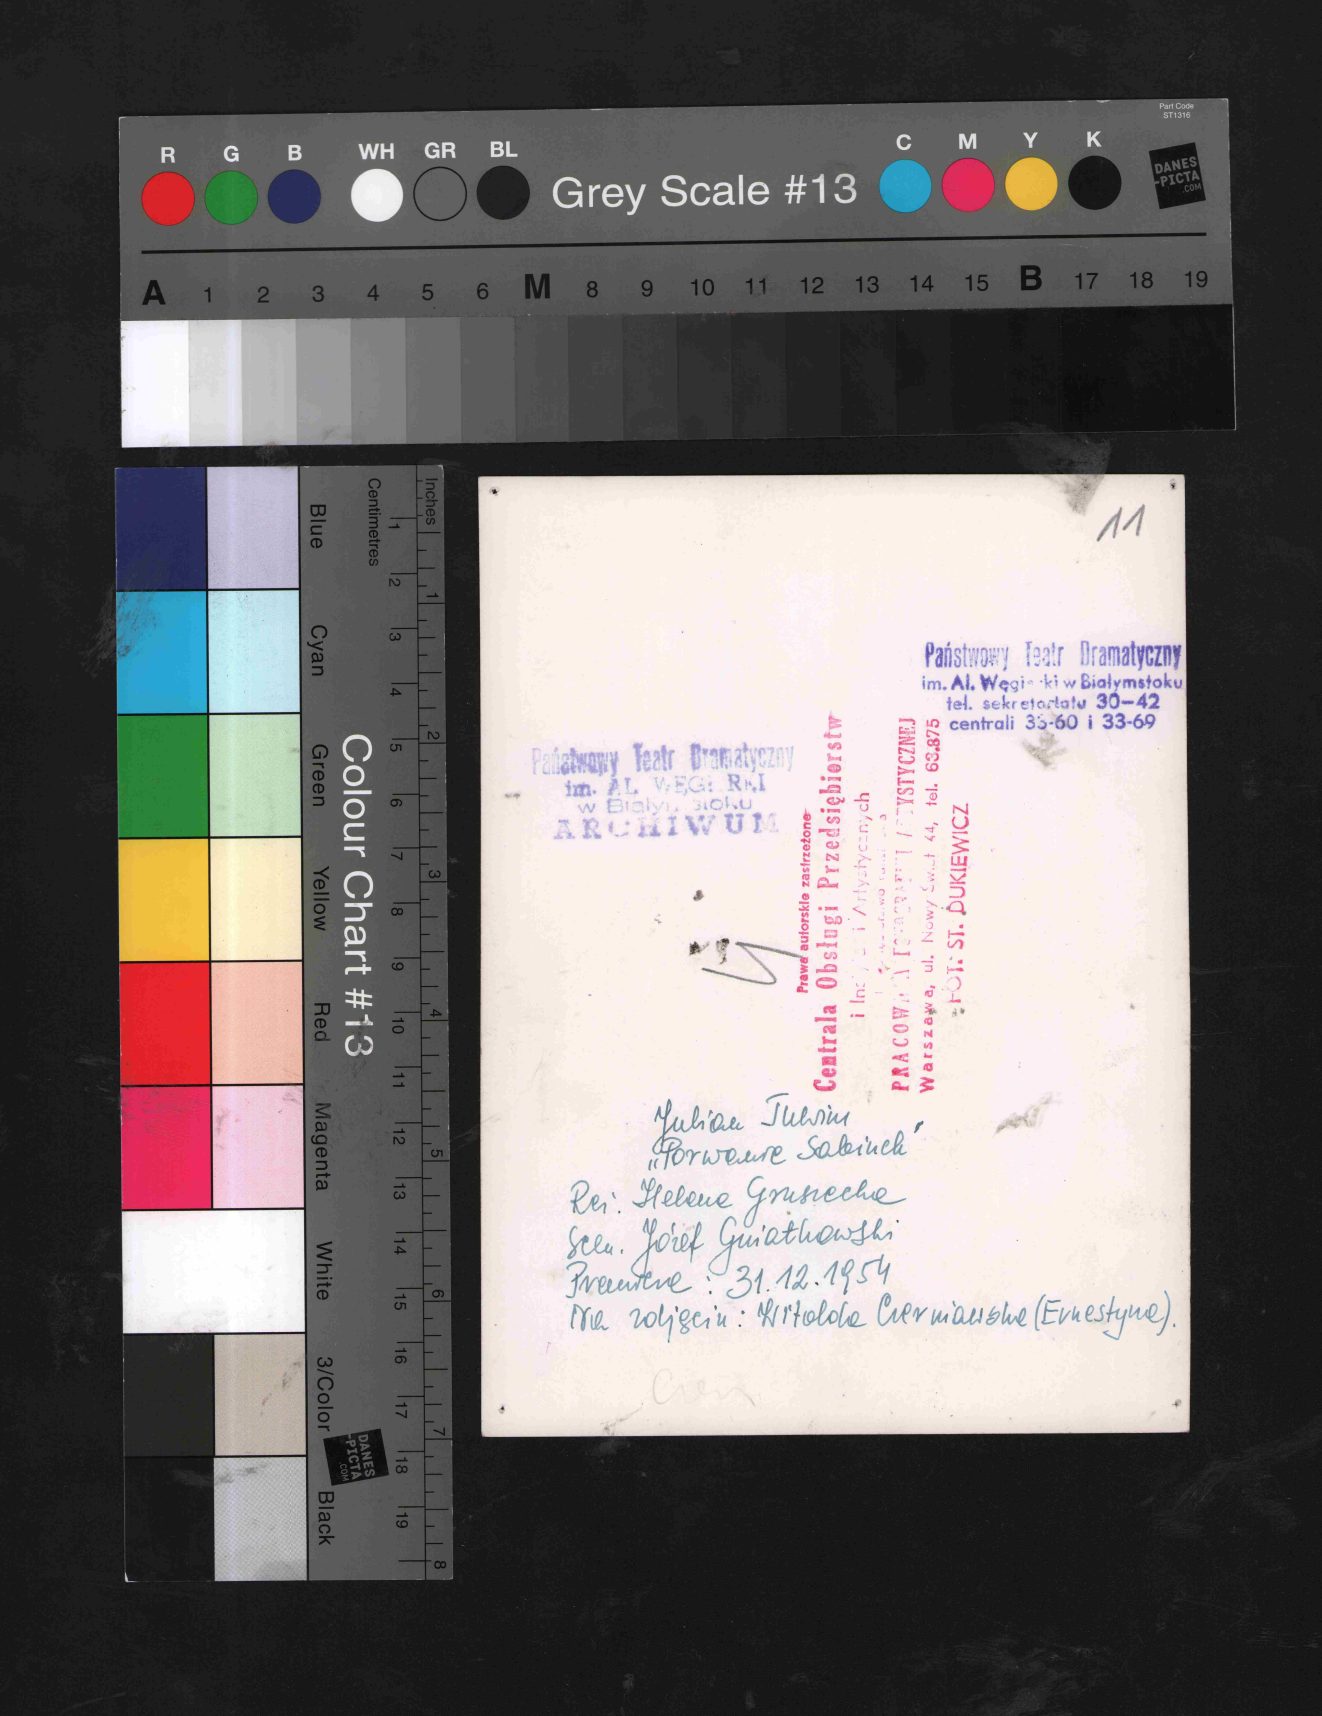 Part Code
ST1316
R G B WH GR BL Grey Scale #13 C M Y K
DANES
-PICTA
.COM
A 1 2 3 4 5 6 M 8 9 10 11 12 13 14 15 B 17 18 19
Blue
Cyan
Green
Yellow
Red
Magenta
White
3/Color
Black
Colour Chart #13
Centimetres
1 2 3 4 5 6 7 8 9 10 11 12 13 14 15 16 17 18 19
Inches
1 2 3 4 5 6 7 8
DANES
-PICTA
.COM
11
Państwowy Teatr Dramatyczny
im. Al. Węgierki w Białymstoku
tel. sekretariatu 30-42
centrali 33-60 i 33-69
Państwowy Teatr Dramatyczny
im. AL. WĘGIERKI
w Białymstoku
ARCHIWUM
Prawa autorskie zastrzeżone
Centrala Obsługi Przedsiębiorstw
i Artystycznych
PRACOWNIA FOTOGRAFII ARTYSTYCZNEJ
Warszawa, ul. Nowy Świat 44, tel. 63.875
FOT: ST. DUKIEWICZ
Julian Tuwim
„Porwanie Sabinek"
Reż. Helena Grusiecka
Scen. Józef Gniatkowski
Premiera : 31.12.1954
Na zdjęciu : Witolda Czerniawska (Ernestyna).